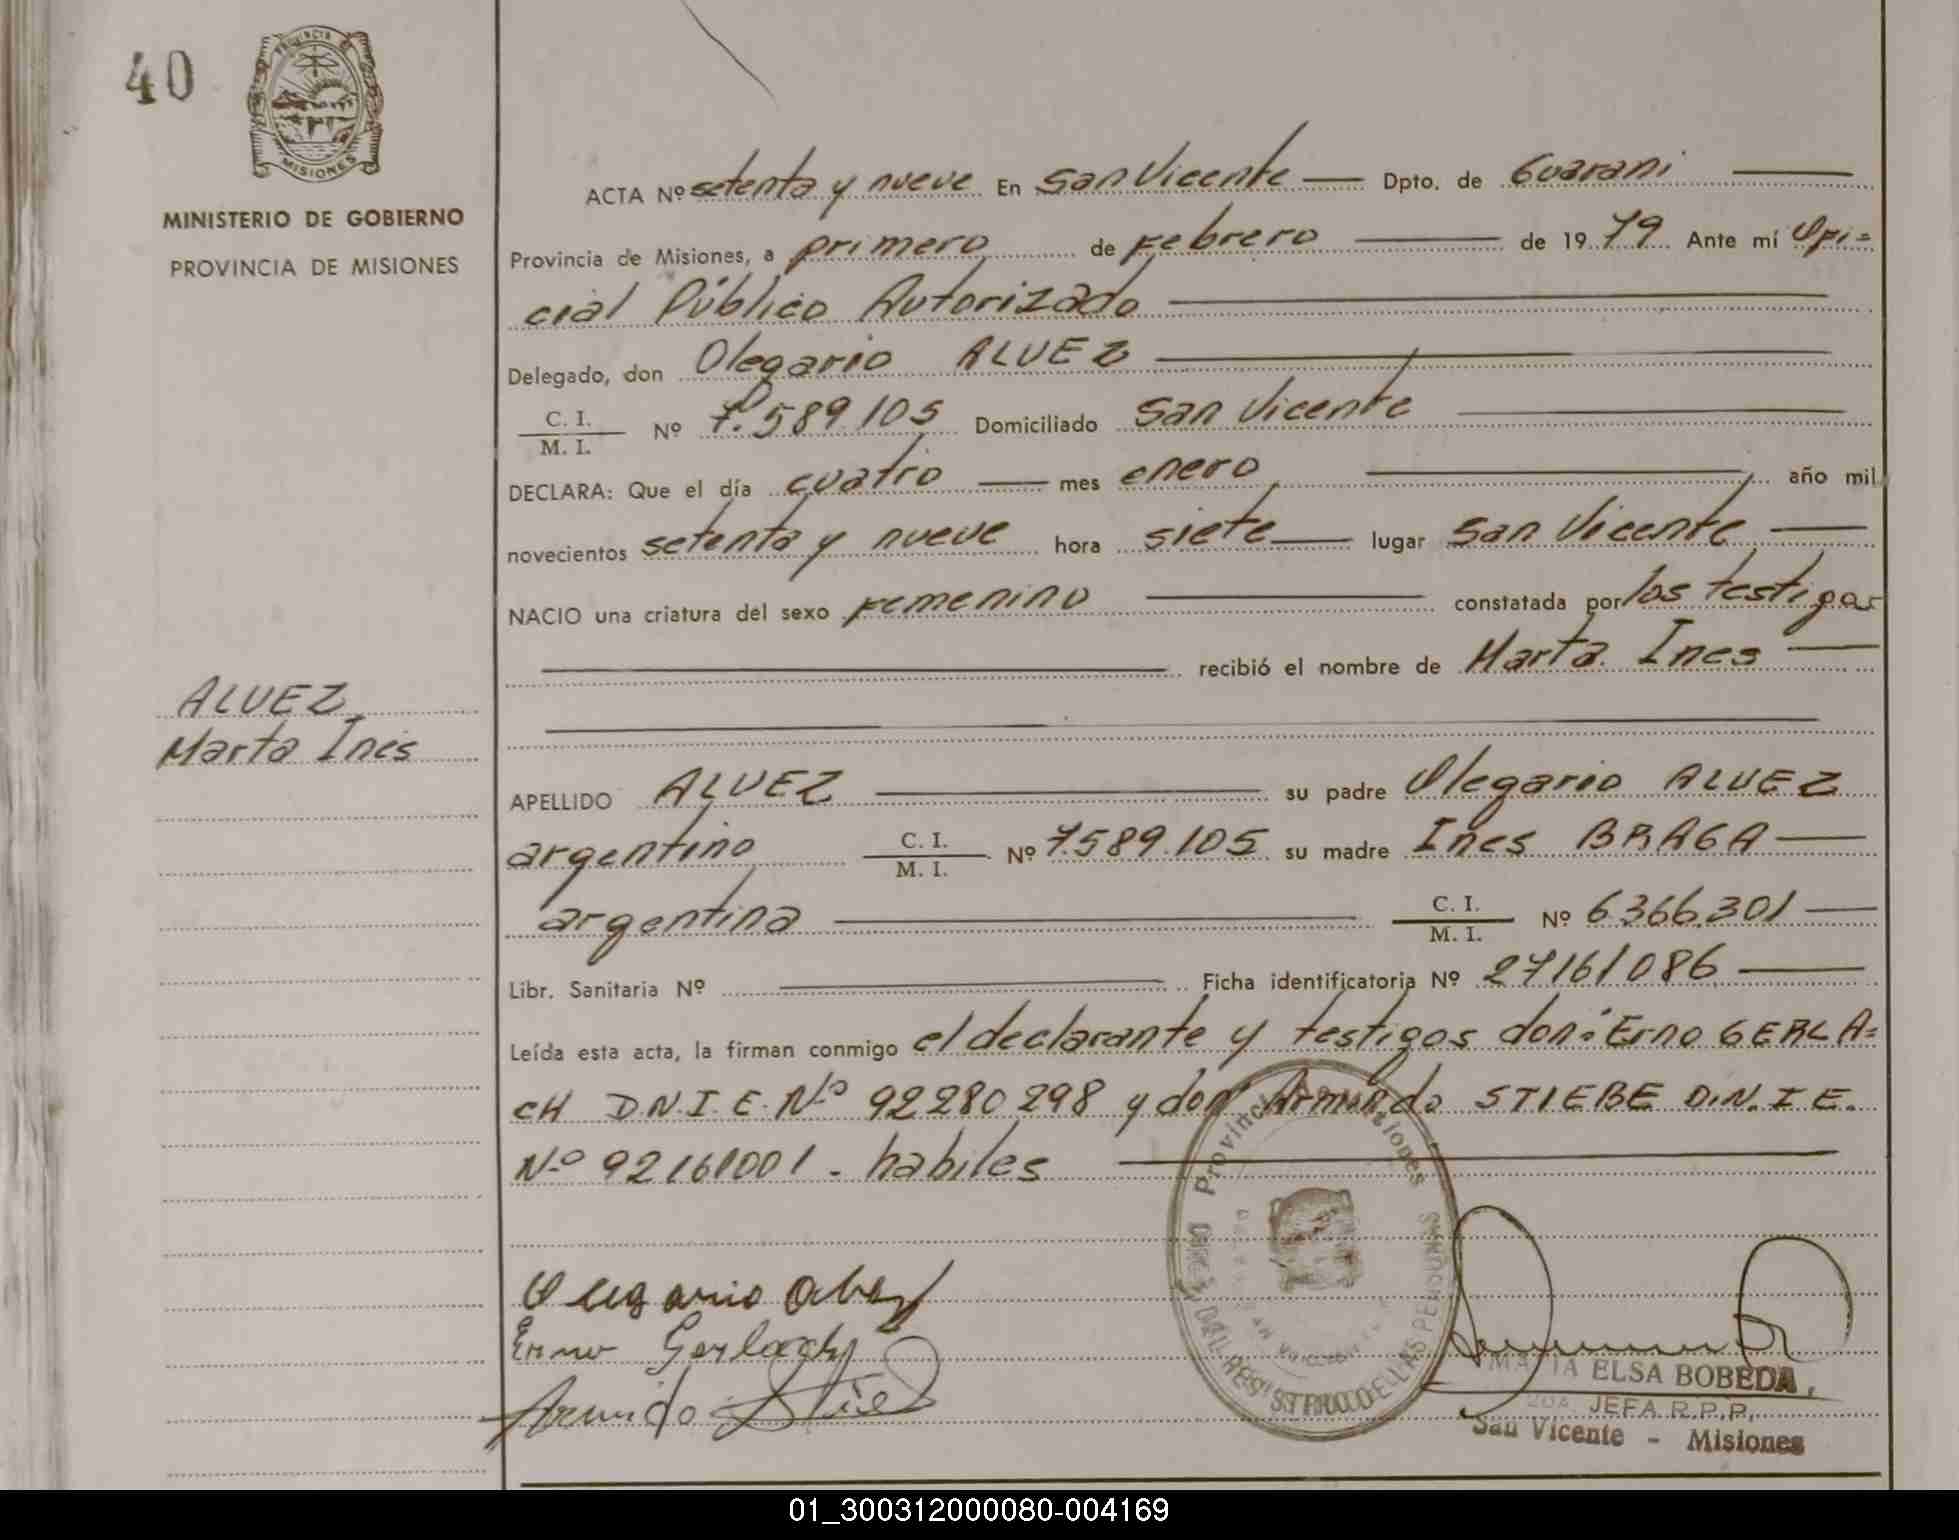 40
PROVINCIA DE
MISIONES
MINISTERIO DE GOBIERNO
PROVINCIA DE MISIONES
ALVEZ
Marta Inés
ACTA Nº setenta y nueve En San Vicente Dpto. de Guarani
Provincia de Misiones, a primero de febrero de 1979 Ante mí Ofi=
cial Público Autorizado
Delegado, don Olegario ALVEZ
C. I.
M. I. Nº 7.589.105 Domiciliado San Vicente
DECLARA: Que el día cuatro mes enero año mil
novecientos setenta y nueve hora siete lugar San Vicente
NACIO una criatura del sexo femenino constatada por los testigos
recibió el nombre de Marta Ines
APELLIDO ALVEZ su padre Olegario ALVEZ
argentino C. I. M. I. Nº 7.589.105 su madre Ines BRAGA
argentina C. I. M. I. Nº 6.366.301
Libr. Sanitaria Nº Ficha identificatoria Nº 27161086
Leída esta acta, la firman conmigo el declarante y testigos don: Erno GERLA=
CH D.N.I.E. Nº 92280298 y don Armindo STIEBE D.N.I.E.
Nº 92161001 - habiles
Provincia de Misiones
Olegario Alvez
Erno Gerlach
Armindo
MARIA ELSA BOBEDA
JEFA R.P.P.
San Vicente - Misiones
01_300312000080-004169